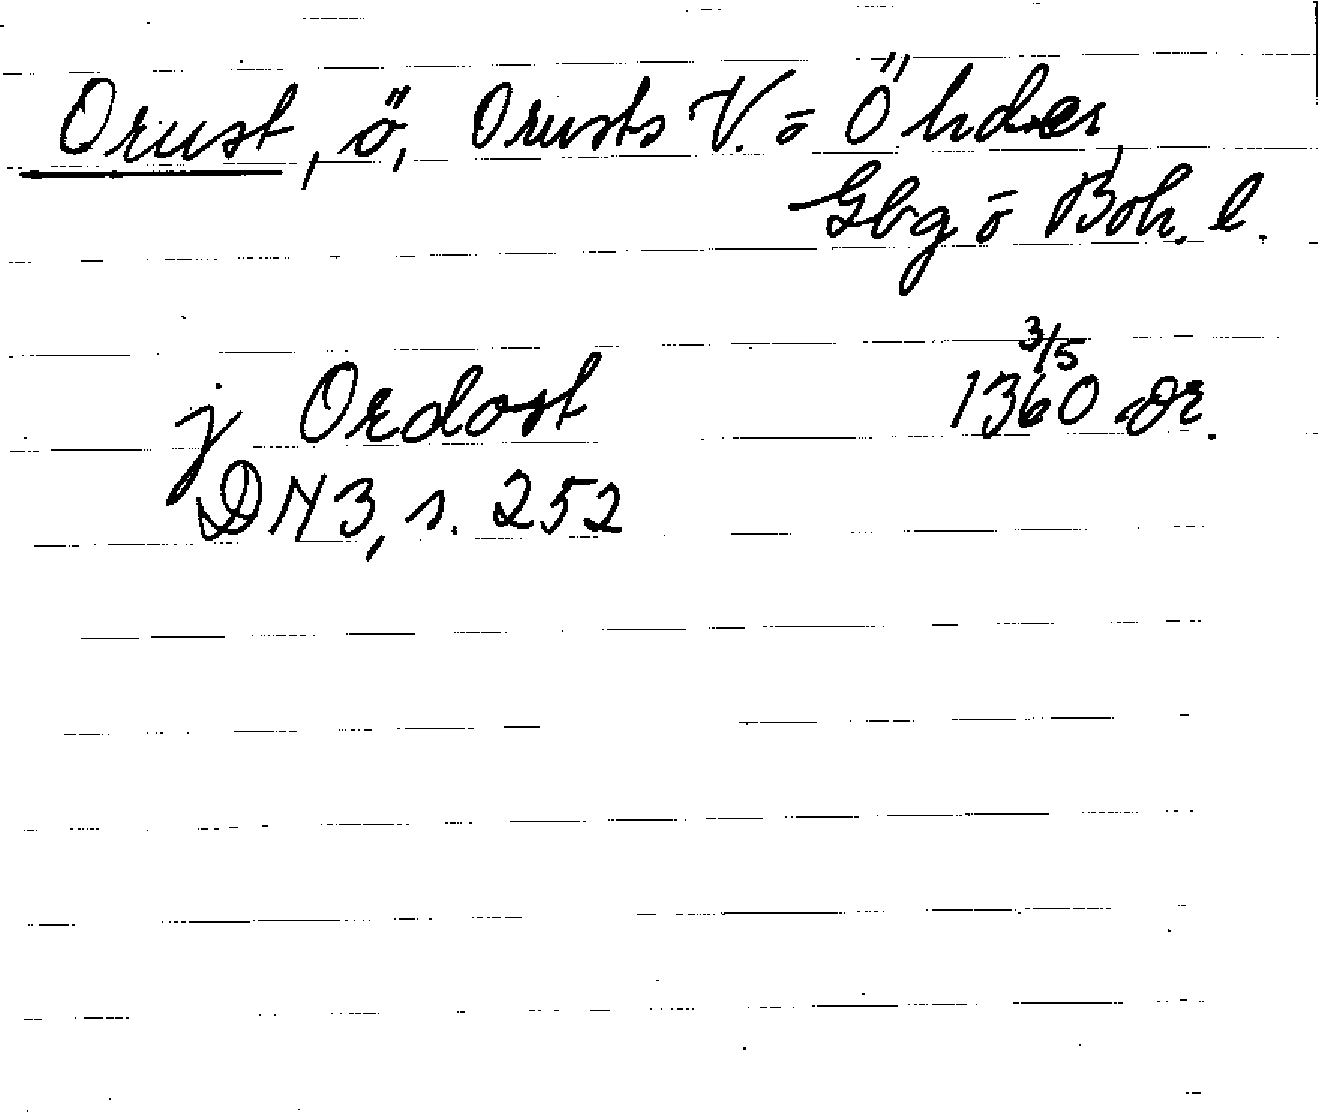 Orust, ö, Orusts V. o Ö hder,
Gbg o Boh. l.
j Ordost 1360 3/5 or.
DN 3, s. 252